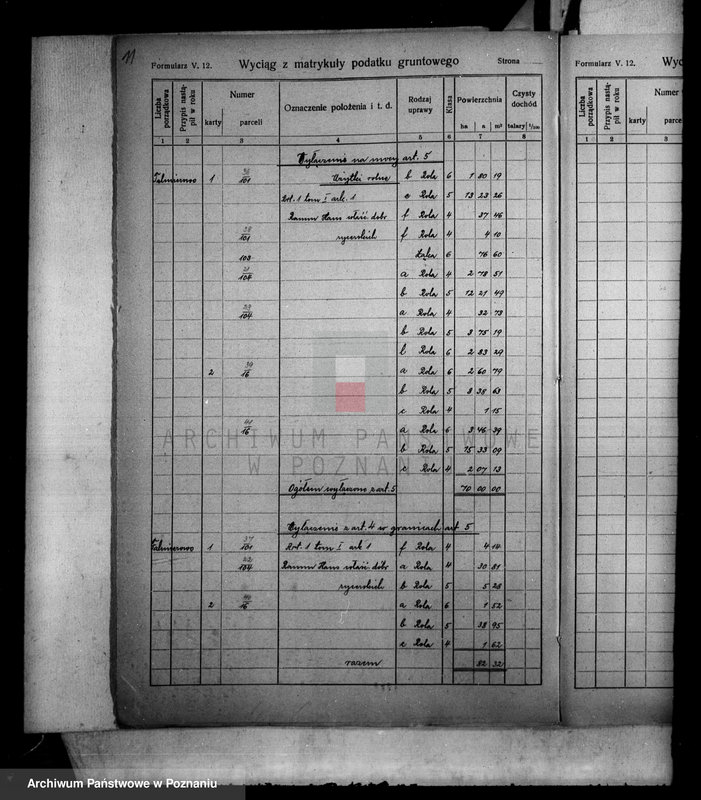 11
Formularz V. 12. Wyciąg z matrykuły podatku gruntowego Strona
Liczba porządkowa Przypis nastąpił w roku Numer karty parceli Oznaczenie położenia i t. d. Rodzaj uprawy Klasa Powierzchnia ha a m² Czysty dochód talary ¹/₁₀₀
1 2 3 4 5 6 7 8
Wyłączenie na nowy art. 5
1 36/101 Użytki rolne b Rola 6 1 80 19
Rot. 1 tom I ark. 1 e Rola 5 13 23 26
Ramm Hans właśc. dóbr f Rola 4 37 46
38/101 rycerskich f Rola 4 4 10
103 Łąka 6 76 60
21/104 a Rola 4 2 78 51
b Rola 5 12 21 49
23/104 a Rola 4 32 73
b Rola 5 3 75 19
l Rola 6 2 83 29
2 39/16 a Rola 6 2 60 79
b Rola 5 8 38 63
c Rola 4 1 15
41/16 a Rola 6 3 46 39
b Rola 5 15 33 09
c Rola 4 2 07 13
Ogółem wyłączono z art. 5 70 00 00
Wyłączenie z art. 4 w granicach art. 5
1 37/101 Rot. 1 tom I ark 1 f Rola 4 4 14
22/104 Ramm Hans właśc. dóbr a Rola 4 30 81
rycerskich b Rola 5 5 28
2 40/16 a Rola 6 1 52
b Rola 5 38 95
c Rola 4 1 62
razem 82 32
Formularz V. 12. Wyc
Liczba porządkowa Przypis nastąpił w roku Numer karty
1 2 3
ARCHIWUM PAŃSTWOWE
W POZNANIU
Archiwum Państwowe w Poznaniu